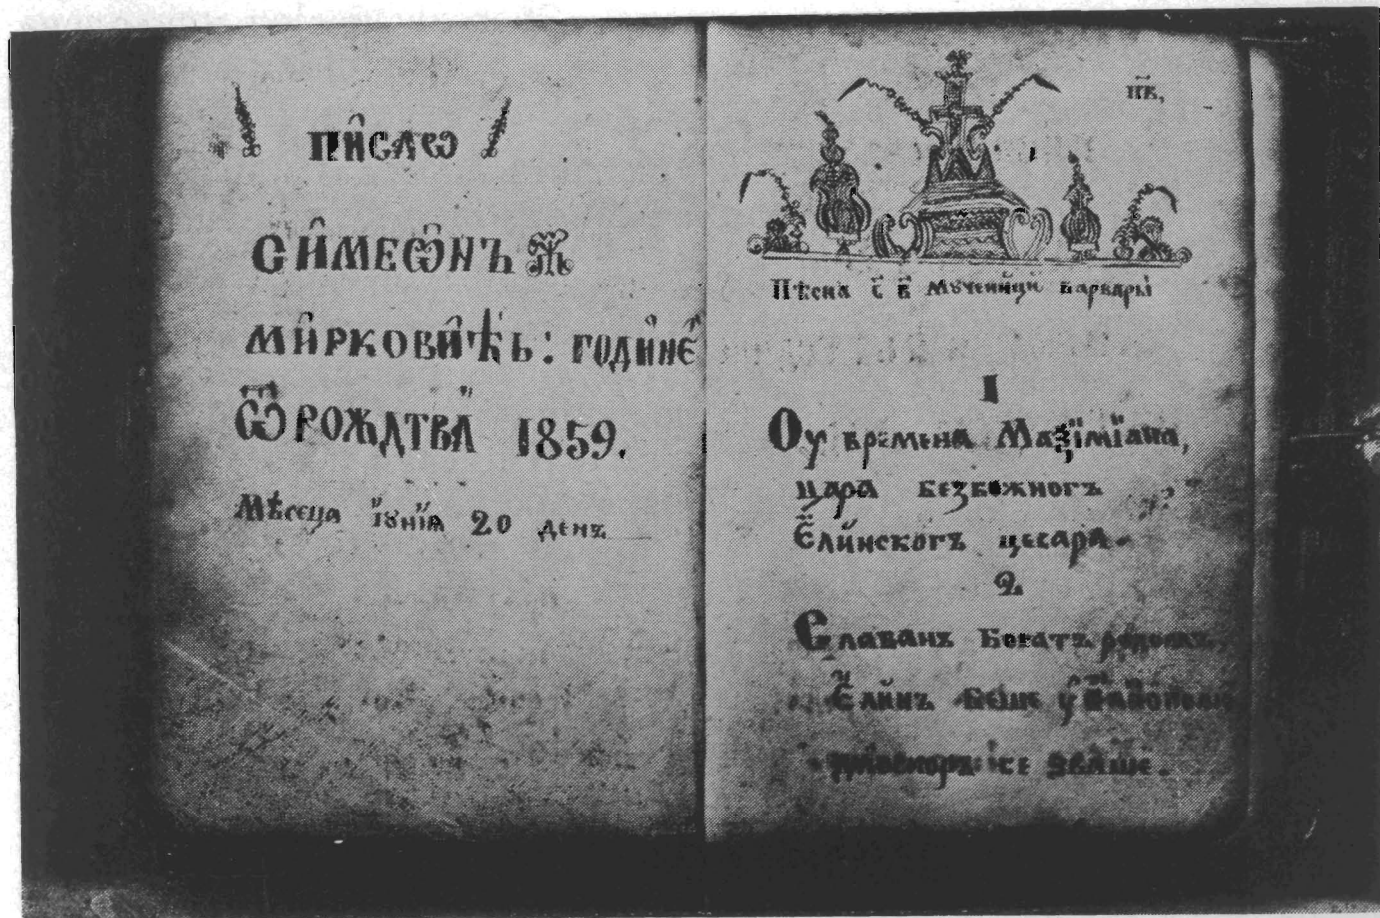 пи̂саѡ
си̂меѡ̂нъ
ми̂ркови̂ћь: годинѐ
ѿ рождтва̀ 1859.
Мѣсеца їꙋнїа 20 денъ
нв,
Пѣсна с҃ в҃ мꙋченици варвары
1
Оу времена Маѯїмїана,
цара безбожногъ
Ёлинскогъ цесара.
2
Славанъ Богатъ родомъ,
Ёлинъ беше у
се зваше.